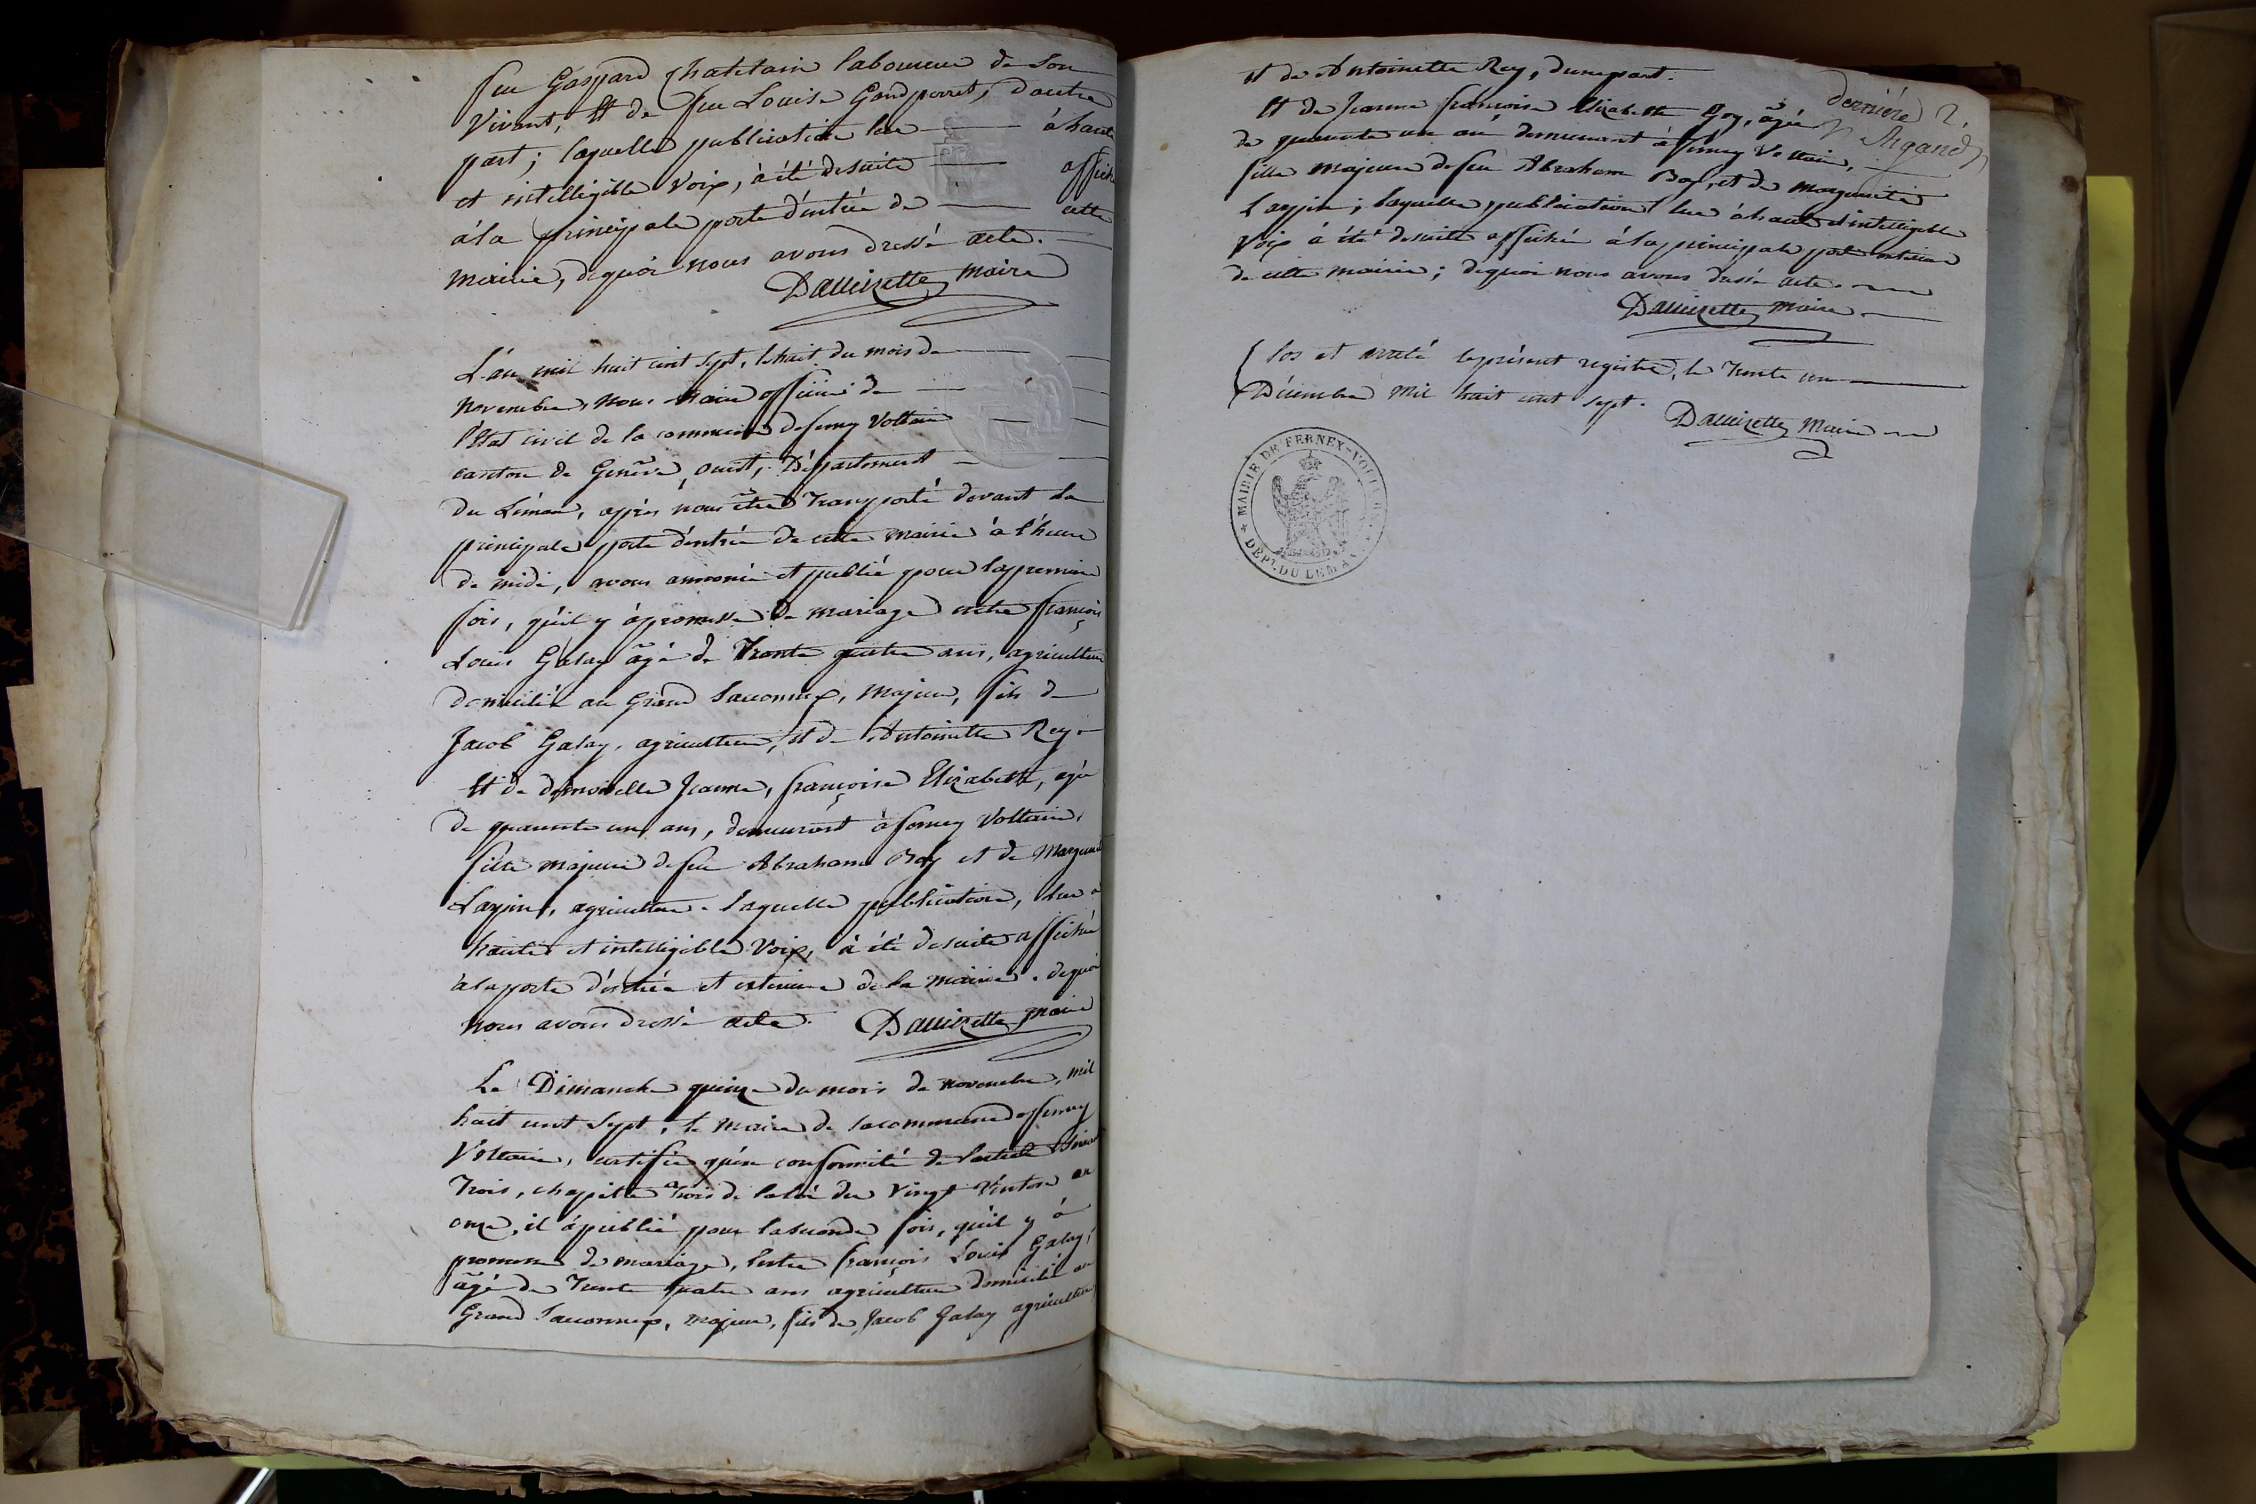 feu Gaspard Chatelain laboureur de son
Vivant, et de feu Louise Grandperret, d'autre
part; laquelle publication lue à haute
et intelligible voix, à été de suite affichée
à la principale porte d'entrée de cette
mairie, dequoi nous avons dressé acte.
maire
L'an mil huit cent sept, le huit du mois de
novembre, nous maire officier de
l'Etat civil de la commune de ferney Voltaire
canton de Genève, ouest, Département
du Léman, après nous être transporté devant la
principale porte d'entrée de cette mairie à l'heure
de midi, avons annoncé et publié pour la premiere
fois, qu'il y à promesse de mariage entre françois
Louis Galay âgé de Trente quatre ans, agriculteur
domicilié au Grand Sacconnex, majeur, fils de
Jacob Galay, agriculteur, et de Antoinette Rey.
Et de demoiselle Jeanne, françoise Elizabeth, agée
de quarante un ans, demeurant à ferney Voltaire,
fille majeure de feu Abraham Roy et de Marguerite
agriculteur. laquelle publication, lue a
haute et intelligible voix, à été de suite affichée
à la porte d'entrée et exterieure de la mairie. dequoi
nous avons dressé acte. maire
Le Dimanche quinze du mois de novembre, mil
huit cent sept, le maire de la commune de ferney
Voltaire, certifie qu'en conformité de l'article
Trois, chapitre trois de la loi du Vingt Ventose an
onze, il à publié pour la seconde fois, qu'il y à
promesse de mariage, Entre françois Louis Galay,
âgé de Trente quatre ans agriculteur domicilié au
Grand Sacconnex, majeur, fils de Jacob Galay agriculteur,
et de Antoinette Rey, d'une part.
dernière 2.
Argand
Et de Jeanne françoise Elizabeth Roy, agée
de quarante un ans demeurant à ferney Voltaire,
fille majeure de feu Abraham Roy, et de Marguerite
laquelle publication lue à haute et intelligible
voix à été de suite affichée à la principale porte exterieure
de cette mairie; dequoi nous avons dressé acte.
maire
Clos et arreté le présent registre, le trente un
Décembre mil huit cent sept.
maire
MAIRIE DE FERNEX-VOLTAIRE
DEPT. DU LEMAN